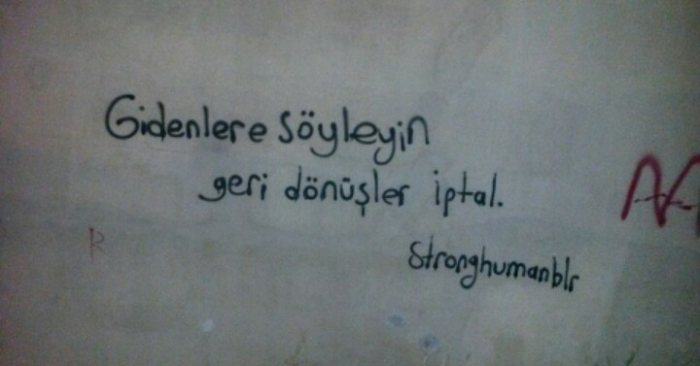 Gidenlere söyleyin
geri dönüşler iptal.
Stronghumanblr
R